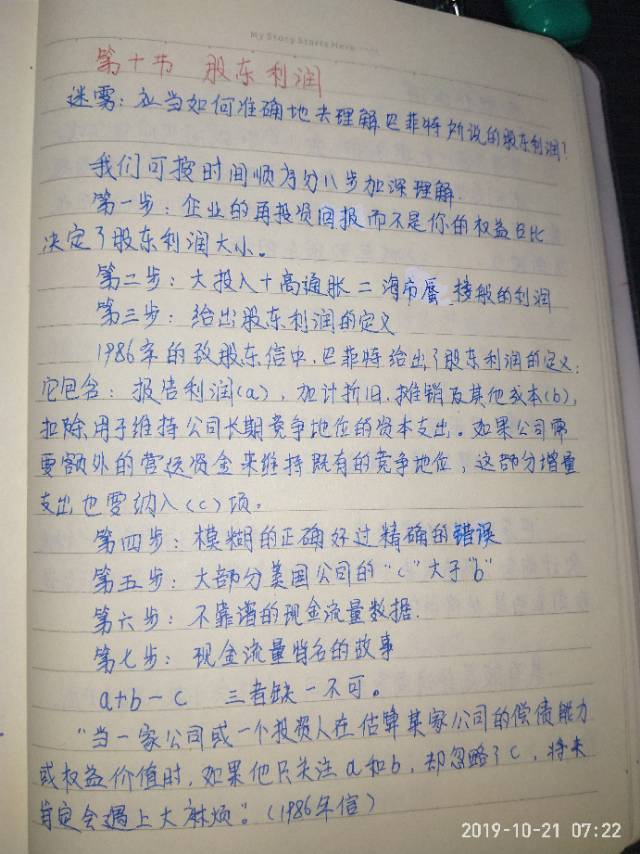 My Story Starts Here
第十节 股东利润
迷雾：应当如何准确地去理解巴菲特所说的股东利润？
我们可按时间顺序分八步加深理解.
第一步：企业的再投资回报而不是你的权益占比
决定了股东利润大小。
第二步：大投入+高通胀=海市蜃楼般的利润
第三步：给出股东利润的定义
1986年的致股东信中，巴菲特给出了股东利润的定义：
它包含：报告利润(a)，加计折旧.摊销及其他成本(b)，
扣除用于维持公司长期竞争地位的资本支出。如果公司需
要额外的营运资金来维持既有的竞争地位，这部分增量
支出也要纳入(c)项。
第四步：模糊的正确好过精确的错误
第五步：大部分美国公司的"c"大于"b"
第六步：不靠谱的现金流量数据.
第七步：现金流量背后的故事
a+b-c 三者缺一不可。
"当一家公司或一个投资人在估算某家公司的偿债能力
或权益价值时，如果他只关注a和b，却忽略了c，将来
肯定会遇上大麻烦"。(1986年信)
2019-10-21 07:22